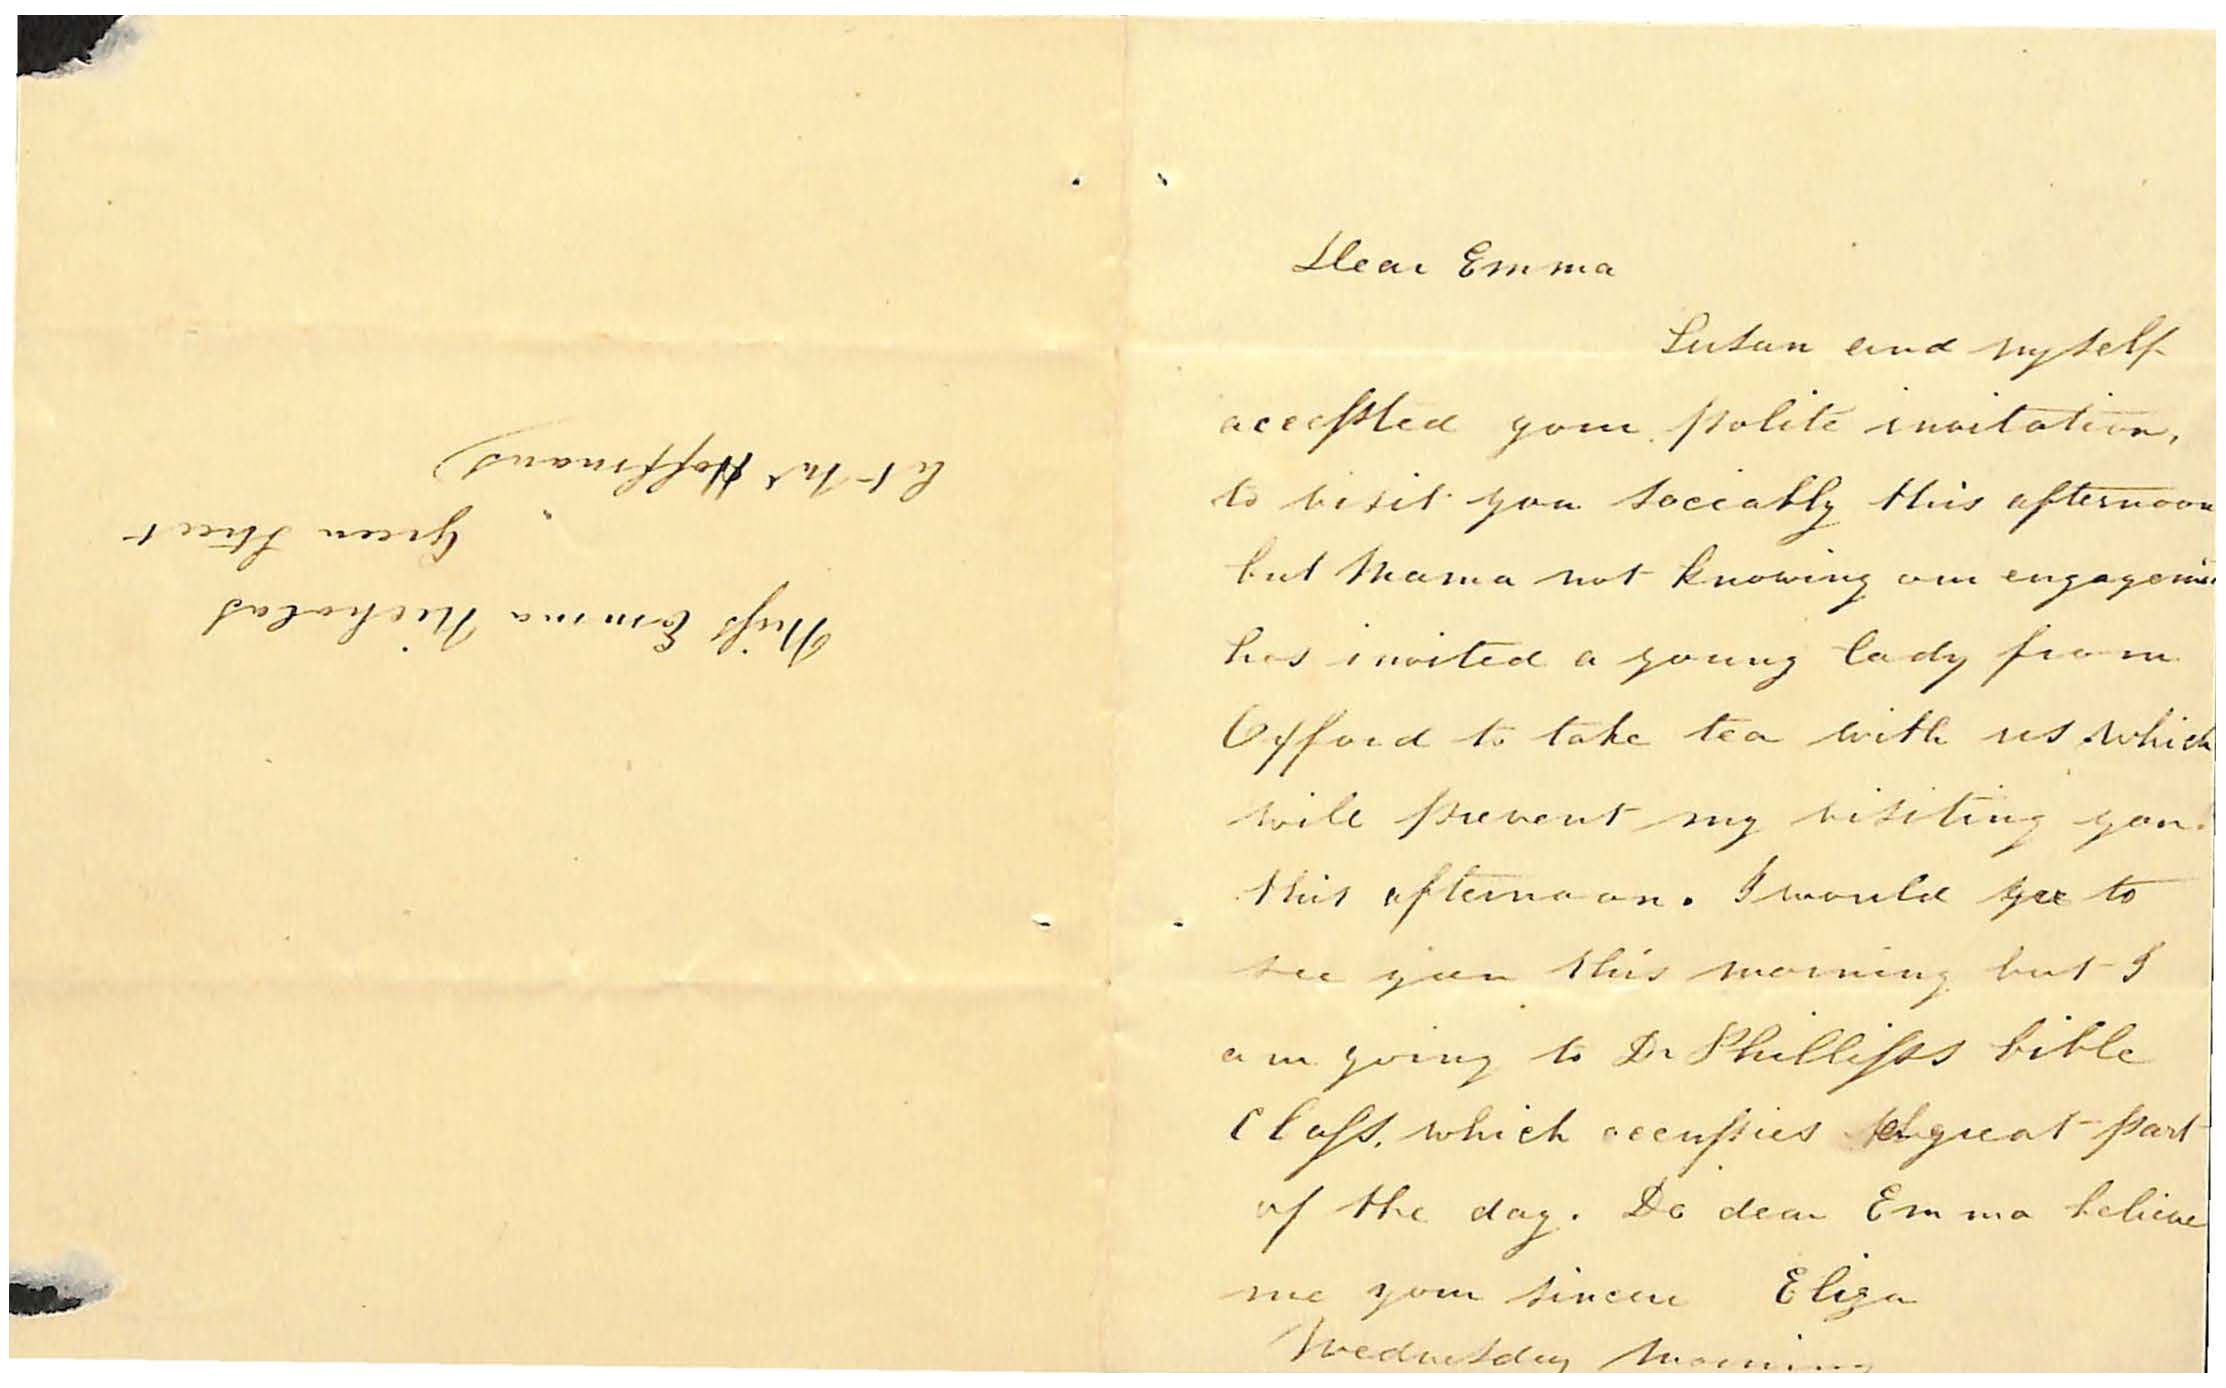 Dear Emma
Susan and myself
accepted your polite invitation,
to visit you sociably this afternoon
but Mama not knowing our engageme
has invited a young lady from
Oxford to take tea with us which
will prevent my visiting you.
this afternoon. I would go to
see you this morning but I
am going to Dr Phillips bible
Class, which occupies a great part
of the day. Do dear Emma believe
me your sincere Eliza
Wednesday Morning
Miss Emma Nicholas
Green Street
at Mr Hoffmans